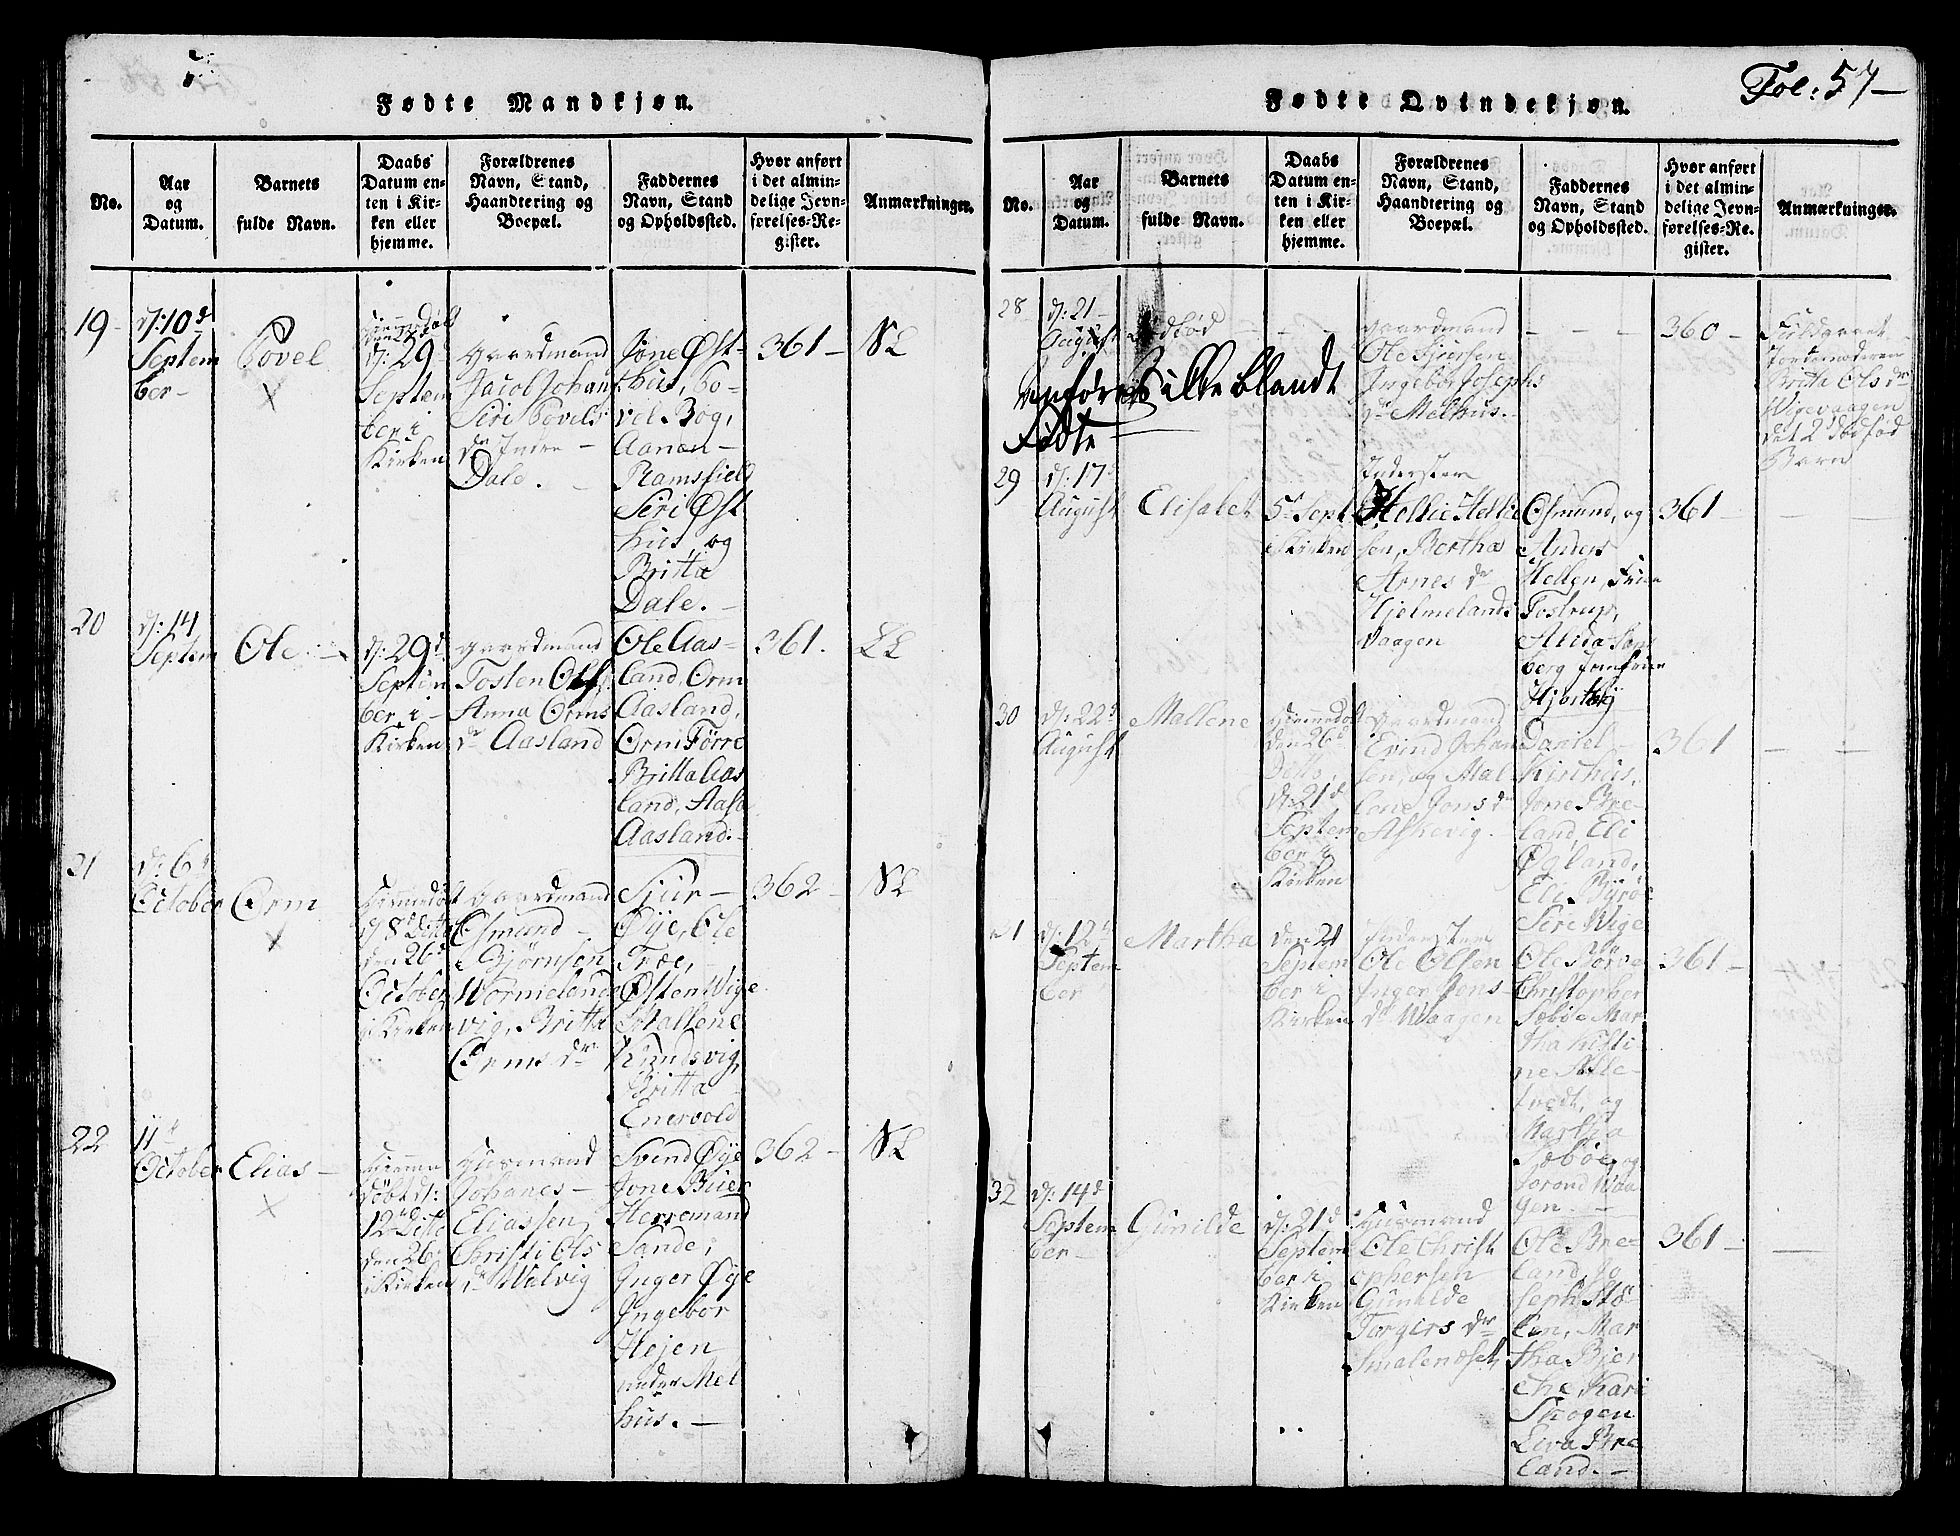 Fødte Mandkjøn.
No.
Aar
og
Datum.
Barnets
fulde Navn.
Daabs
Datum en-
ten i Kir-
ken eller
hjemme.
Forældrenes
Navn, Stand,
Haandtering og
Boepæl.
Faddernes
Navn, Stand
og Opholdssted.
Hvor anført
i det almin-
delige Jevn-
førelses-Re-
gister.
Anmærkninger.
19
d: 10d
Septem
ber
Povel
d: 29
Septem
ber i
Kirken
Gaardmand
Jacob Johans
Siri Povels
dr Indre
Dale.
Jone Øst-
hus, Po-
vel Bøg,
Aanen
Ramsfield
Seri Øst
hus, og
Britta
Dale.
361
20
d: 14
Septem
Ole
d: 29d
Septem
ber i
Kirken
Gaardmand
Tosten Ols
Anna Orms
dr Aasland
Ole Aas-
land Orm
Aasland,
Orm Førre
Britta Aas
land, Aasa
Aasland.
361.
21
d: 6
October
Orm
hjemmedøbt
d 8d Ditto
den 26d
October
i Kirken
Gaardmand
Osmund
Bjørnsen
vig, Britta
Orms dr
Sjur
Øye, Ole
Træe,
Østen Wige
Mallene
Knudsvig,
Britta
Enervold
362
22
11
October
Elias
hjemme
døbt d:
12 Ditto
den 26
i Kirken
Huusmand
Johanes
Eliassen
Christi Ols
dr Walvig
Svend Øye
Jone Buer
Herremand
Sande,
Inger Øye
Ingebor
Højen
under Mel
hus.
362
Fødte Qvindekjøn.
Fol: 57
No.
Aar
og
Datum.
Barnets
fulde Navn.
Daabs
Datum en-
ten i Kir-
ken eller
hjemme.
Forældrenes
Navn, Stand,
Haandtering og
Boepæl.
Faddernes
Navn, Stand
og Opholdssted.
Hvor anført
i det almin-
delige Jevn-
førelses-Re-
gister.
Anmærkninger.
28
d: 21
August
Dødfød
Gaardmand
Ole Sjursen
Ingebor Josephs
dr Melhus.
360
Jordemoderen
Britte Ols dr
Wigevaagen
det 2d dødfød
Barn
anføres ikke blandt
Fødte
29
d: 17
August
Elisabet
5 Sept
i Kirken
Inderster
Hellie Hellie
sen, Bertha
Arnes dr
Hjelmelands
Vaagen
Osmund, og
Anders
Hellen, Frue
Tostrup,
Alida
berg Jomfrue
Hjortby
361
30
d: 22
August
Mallene
hjemmedøbt
den 26d
Ditto,
d: 21d
Septem
ber i
Kirken
Gaardmand
Evind Johan
sen, og Mal
lene Jons dr
Askevig
Daniel
Kirchus,
Jone Bre-
land, Eli
Øgland,
Eli
Seri Wige
361
31
d: 12
Septem
ber
Martha
den 21
Septem
ber i
Kirken
Inderster
Ole Olsen
Inger Jons
dr Waagen
Ole Børve
Christopher
Sæbøe Mar
tha Kisti
ne
og
Martha
Sæbøe, og
Jorond Waa
gen.
361
32
d: 14d
Septem
ber
Gunilde
d: 21d
Septem
ber i
Kirken
Huusmand
Ole Christ
ophersen
Gunilde
Torgirs dr
Ole Bre-
land, Jo
seph Stø-
len, Mar
tha Bjer
che, Kari
Skogen
Liva Bre
land.
361